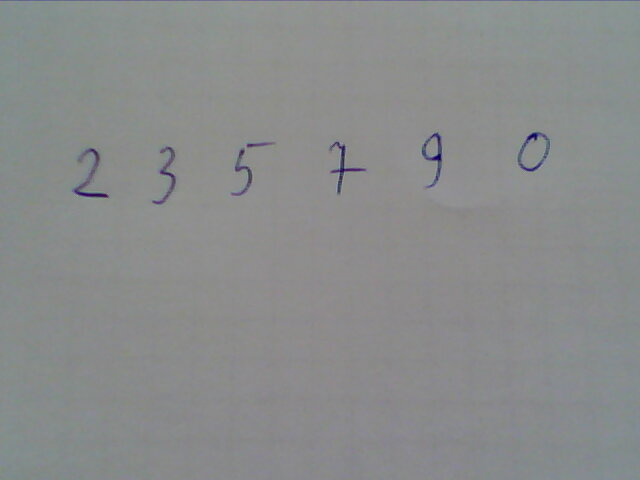 2 3 5 7 9 0